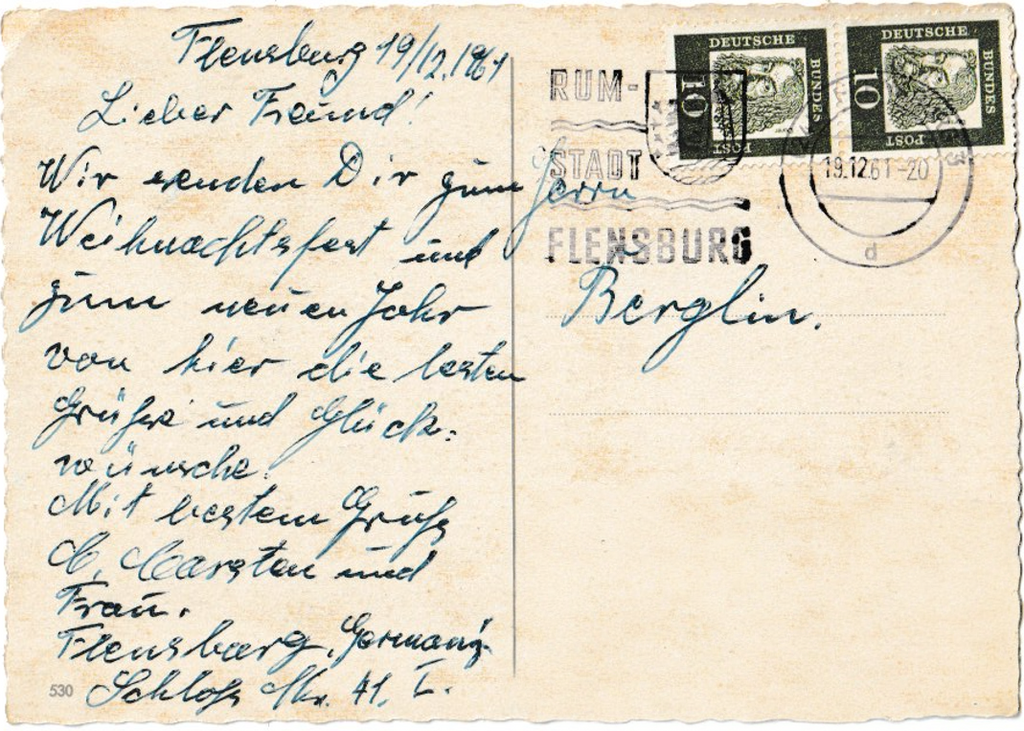 Flensburg 19/12.1961
Lieber Freund!
Wir senden Dir zum
Weihnachtsfest und
zum neuen Jahr
von hier die besten
Grüße und Glück-
wünsche.
Mit bestem Gruß
C. Carsten und
Frau.
Flensburg, Germany
Schloß Str. 41. I.
530
Herrn
Berglin.
RUM-
STADT
FLENSBURG
DEUTSCHE
BUNDES
POST
10
DEUTSCHE
BUNDES
POST
10
19.12.61-20
d